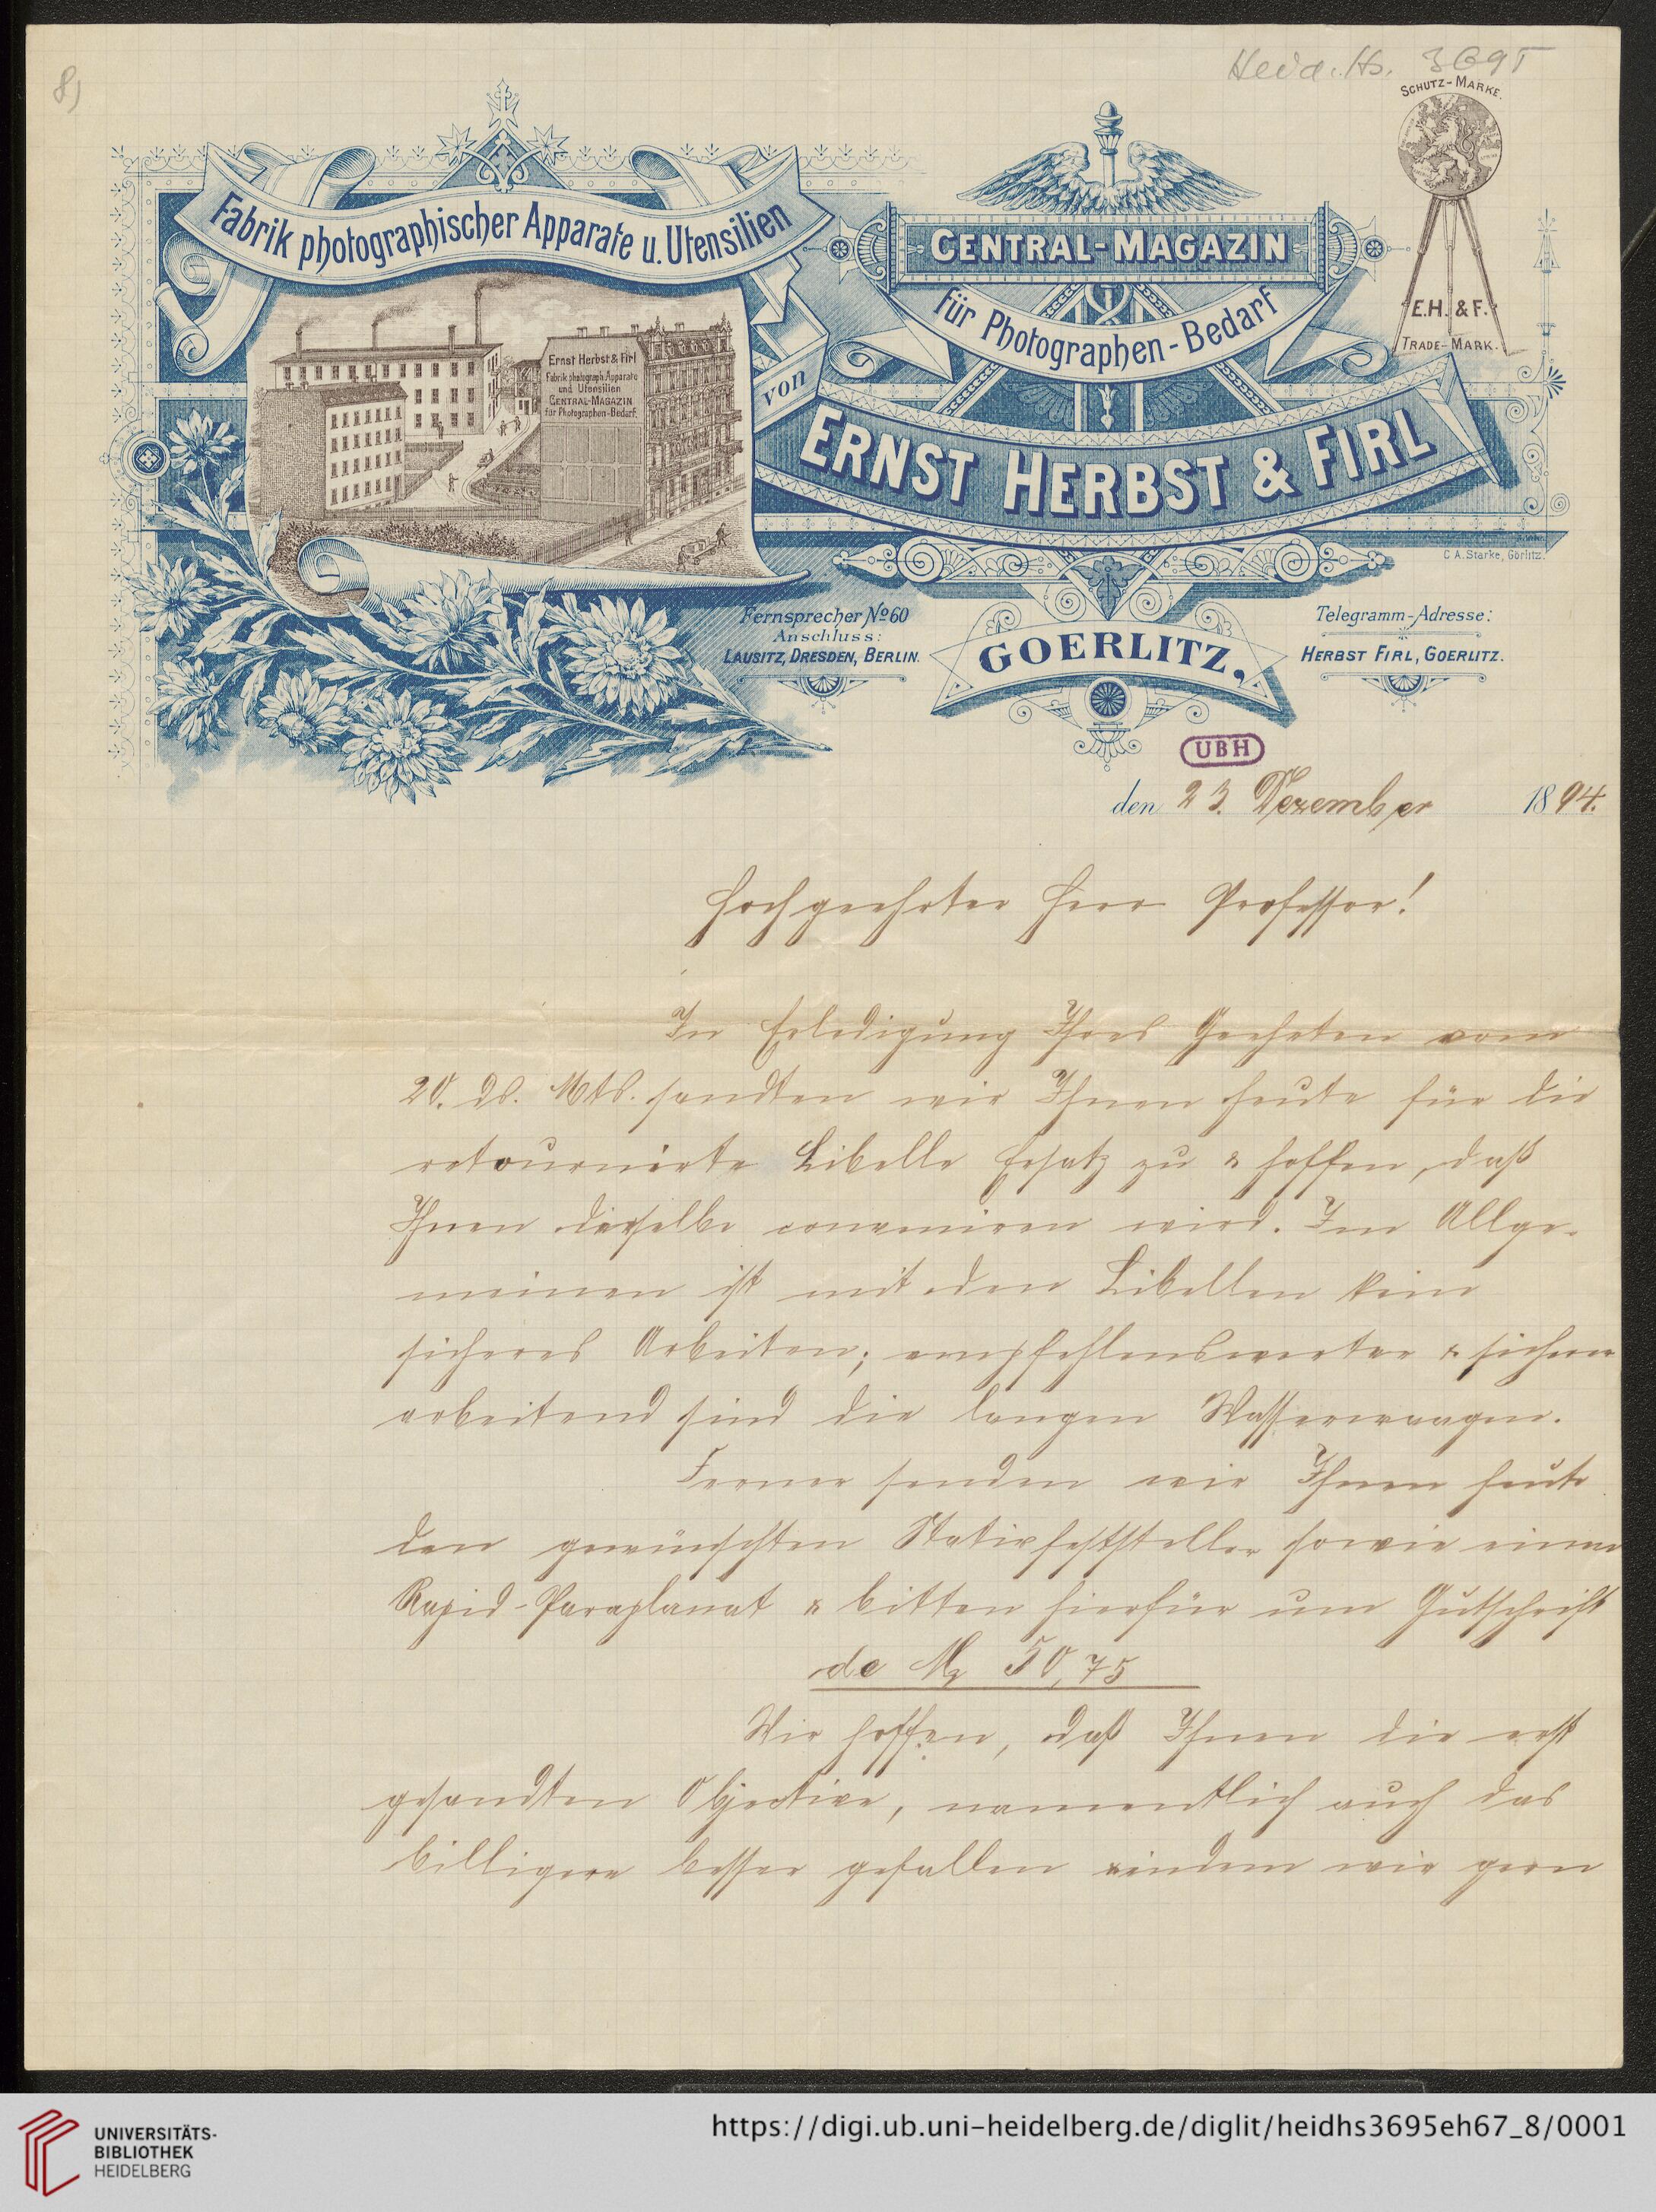 8)
Heid. Hs. 3695
SCHUTZ-MARKE.
E.H. & F.
TRADE-MARK.
Fabrik photographischer Apparate u. Utensilien
von
CENTRAL-MAGAZIN
für Photographen-Bedarf
ERNST HERBST & FIRL
Ernst Herbst & Firl
Fabrik photograph. Apparate
und Utensilien
CENTRAL-MAGAZIN
für Photographen-Bedarf.
C. A. Starke, Görlitz.
Fernsprecher No 60
Anschluss:
LAUSITZ, DRESDEN, BERLIN.
GOERLITZ,
Telegramm-Adresse:
HERBST FIRL, GOERLITZ.
UBH
den 23. Dezember 1894.
Hochgeehrter Herr Professor!
In Erledigung Ihres Geehrten vom
20. ds. Mts. sandten wir Ihnen heute für die
retournirte Libelle Ersatz zu & hoffen, daß
Ihnen dieselbe conveniren wird. Im Allge-
meinen ist mit den Libellen kein
sicheres Arbeiten; empfehlenswerter & sicherer
arbeitend sind die langen Wasserwaagen.
Ferner senden wir Ihnen heute
den gewünschten Stativfeststeller sowie einen
Rapid-Paraplanat & bitten hierfür um Gutschrift
de M 50,75
Wir hoffen, daß Ihnen die erst
gesandten Objective, namentlich auch das
billigere besser gefallen indem wir gern
UNIVERSITÄTS-
BIBLIOTHEK
HEIDELBERG
https://digi.ub.uni-heidelberg.de/diglit/heidhs3695eh67_8/0001